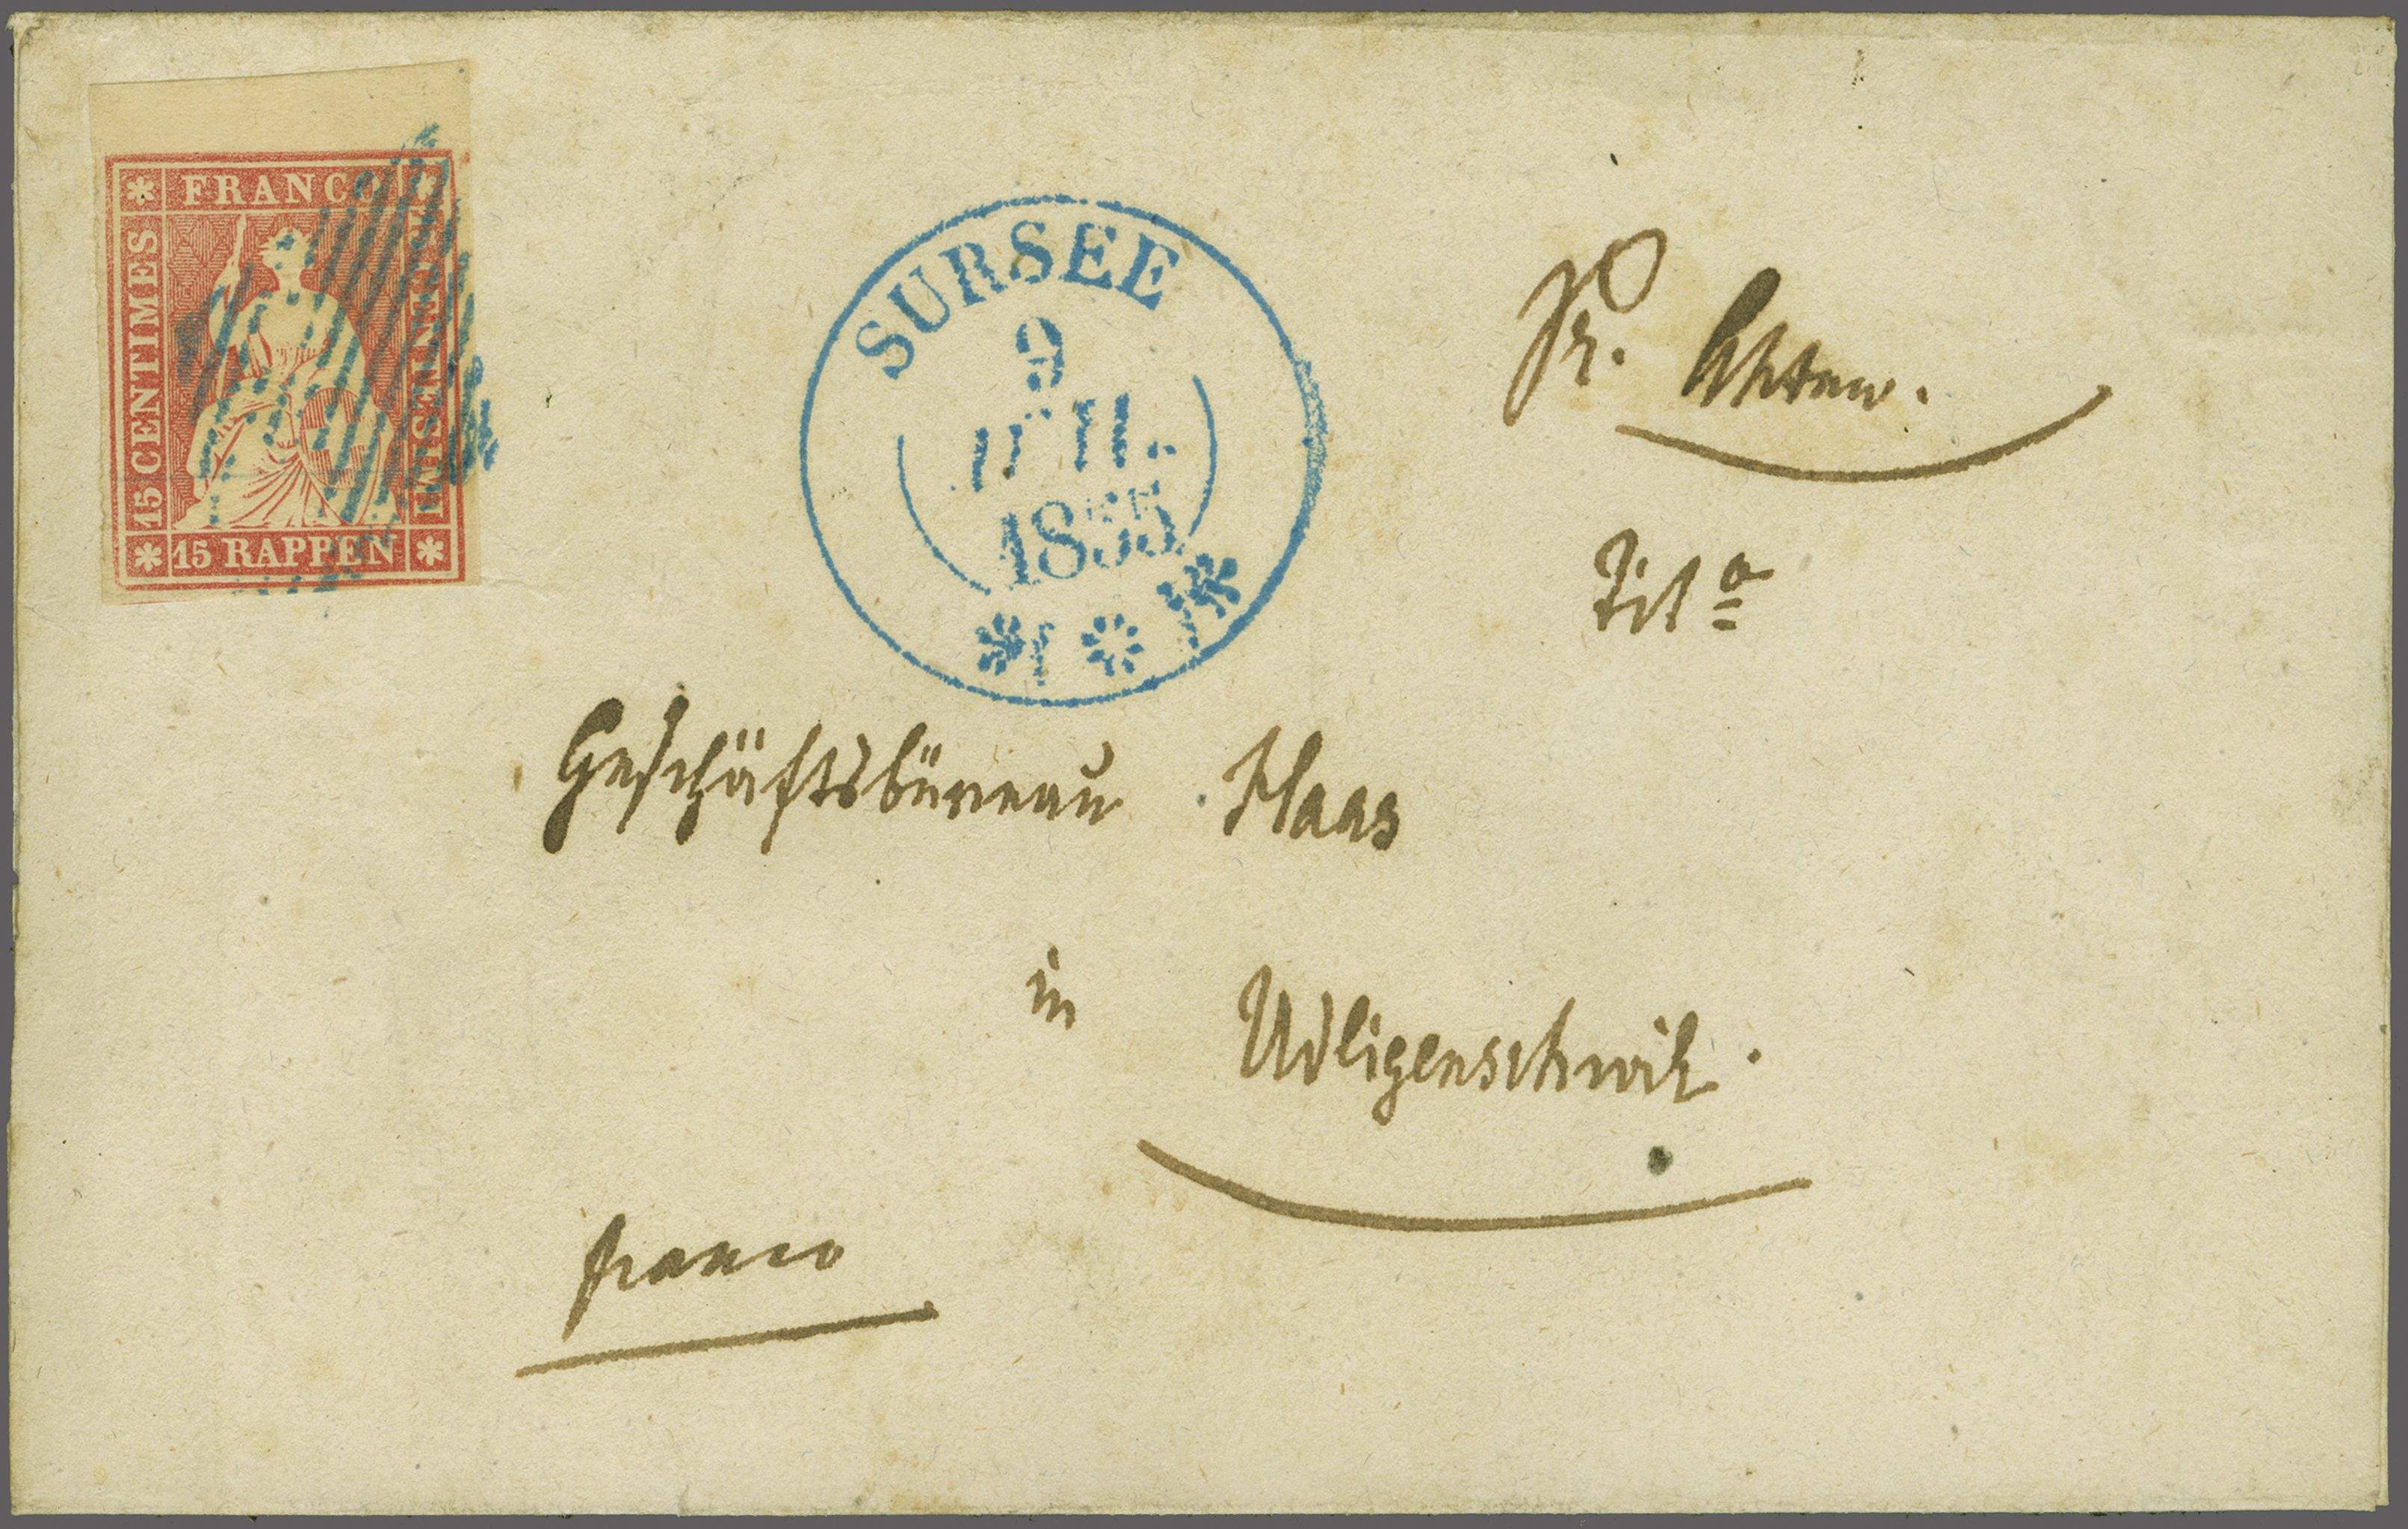 FRANCO
15 CENTIMES
15 CENTESIMI
15 RAPPEN
SURSEE
9
1855
Geschäftsbüreau Haas
in Udligenschwil.
franco